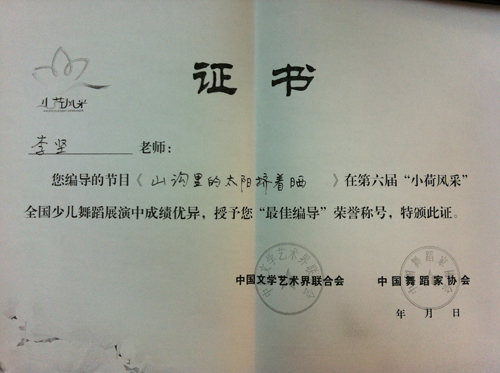 证书
小荷风采
李坚 老师：
您编导的节目《山沟里的太阳挤着晒 》在第六届“小荷风采”
全国少儿舞蹈展演中成绩优异，授予您“最佳编导”荣誉称号，特颁此证。
中国文学艺术界联合会 中国舞蹈家协会
年 月 日